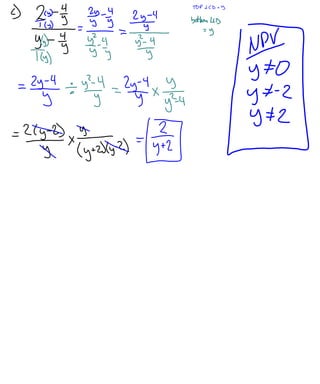 c) (2(y)/1(y) - 4/y) / (y(y)/1(y) - 4/y) = (2y/y - 4/y) / (y²/y - 4/y) = ((2y-4)/y) / ((y²-4)/y)
TOP LCD = y
bottom LCD
= y
= (2y-4)/y ÷ (y²-4)/y = (2y-4)/y × y/(y²-4)
= 2(y-2)/y × y/((y+2)(y-2)) = 2/(y+2)
NPV
y≠0
y≠-2
y≠2